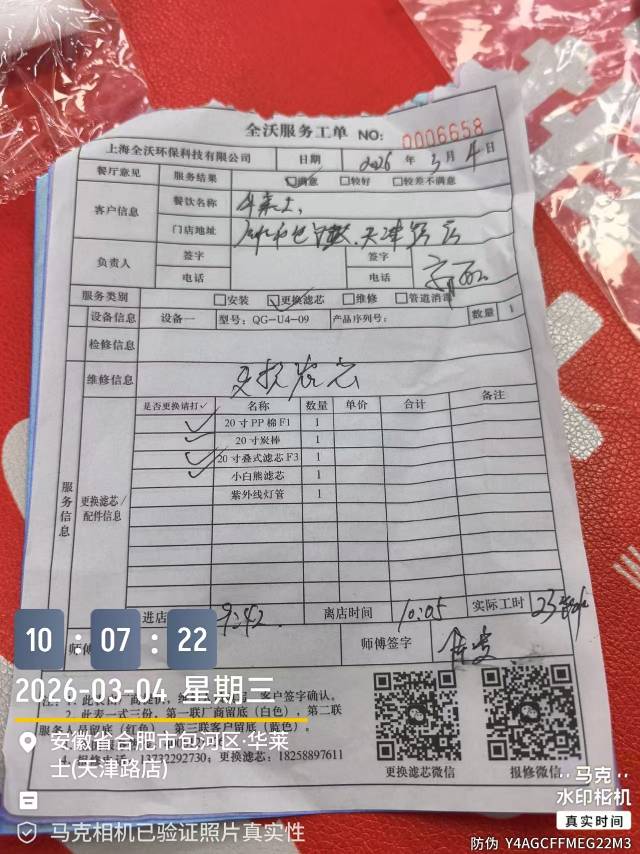 全沃服务工单 NO: 0006658
上海全沃环保科技有限公司 日期 2026 年 3 月 4 日
餐厅意见 服务结果 ☑满意 □较好 □较差不满意
客户信息 餐饮名称 华莱士
门店地址 天津路店
负责人 签字 签字
电话 电话
服务类别 □安装 ☑更换滤芯 □维修 □管道消毒
设备信息 设备一 型号：QG-U4-09 产品序列号： 数量 1
检修信息
维修信息 更换滤芯
是否更换请打✓ 名称 数量 单价 合计 备注
✓ 20寸PP棉F1 1
✓ 20寸炭棒 1
✓ 20寸叠式滤芯F3 1
小白熊滤芯 1
紫外线灯管 1
服务信息
更换滤芯/配件信息
进店 9:42 离店时间 10:05 实际工时 23
师傅 师傅签字
10:07:22
2026-03-04 星期三
2. 此表一式三份，第一联厂商留底（白色），第二联
服务人员留底（红色），第三联客户留底（蓝色）。
安徽省合肥市包河区·华莱
士(天津路店)
13732292730；更换滤芯：18258897611
更换滤芯微信 报修微信
马克相机已验证照片真实性
马克
水印相机
真实时间
防伪 Y4AGCFFMEG22M3